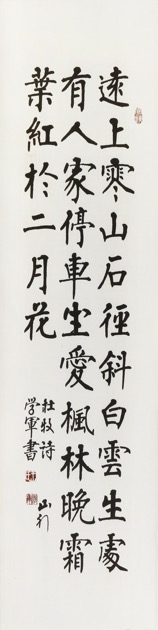 遠上寒山石徑斜白雲生處
有人家停車坐愛楓林晚霜
葉紅於二月花
杜牧詩
山行
学軍書